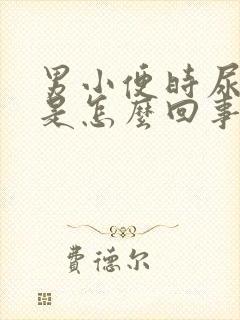 男小便時尿
是怎麼回事
費德尔